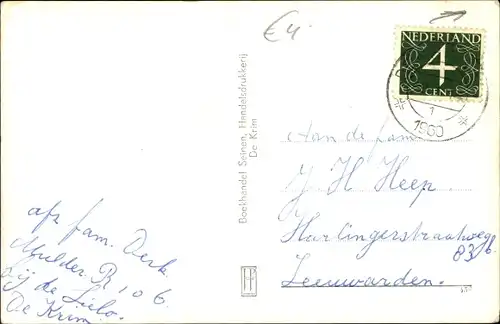 €4
NEDERLAND
4
CENT
1
1960
Boekhandel Seinen, Handelsdrukkerij
De Krim
Aan de fam
J H Heep.
Harlingerstraatweg
83 b
Leeuwarden.
afz fam. Derk
Mulder R 106
bij de Lelo.
De Krim